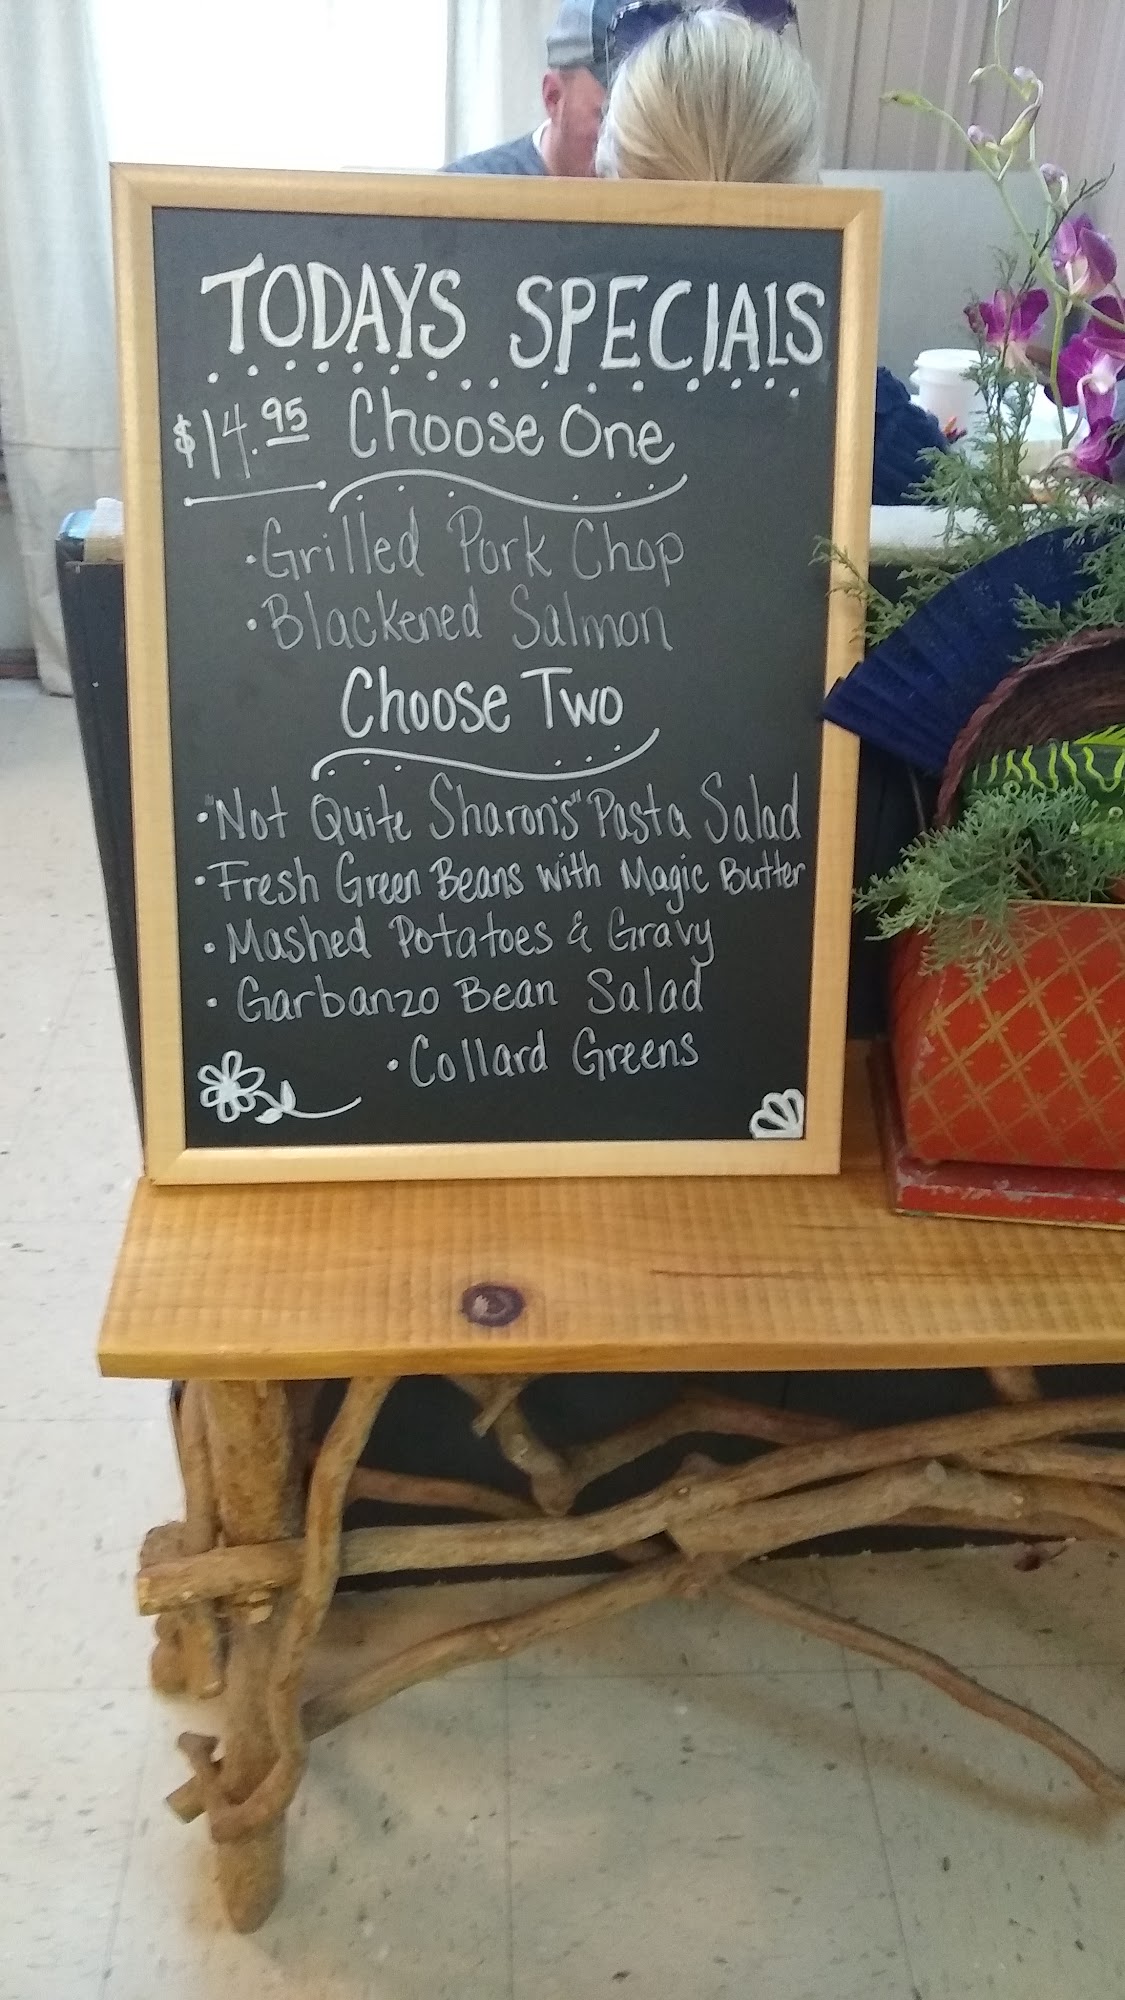 TODAYS SPECIALS
$14.95 Choose One
·Grilled Pork Chop
·Blackened Salmon
Choose Two
·"Not Quite Sharon's" Pasta Salad
·Fresh Green Beans with Magic Butter
·Mashed Potatoes & Gravy
·Garbanzo Bean Salad
·Collard Greens